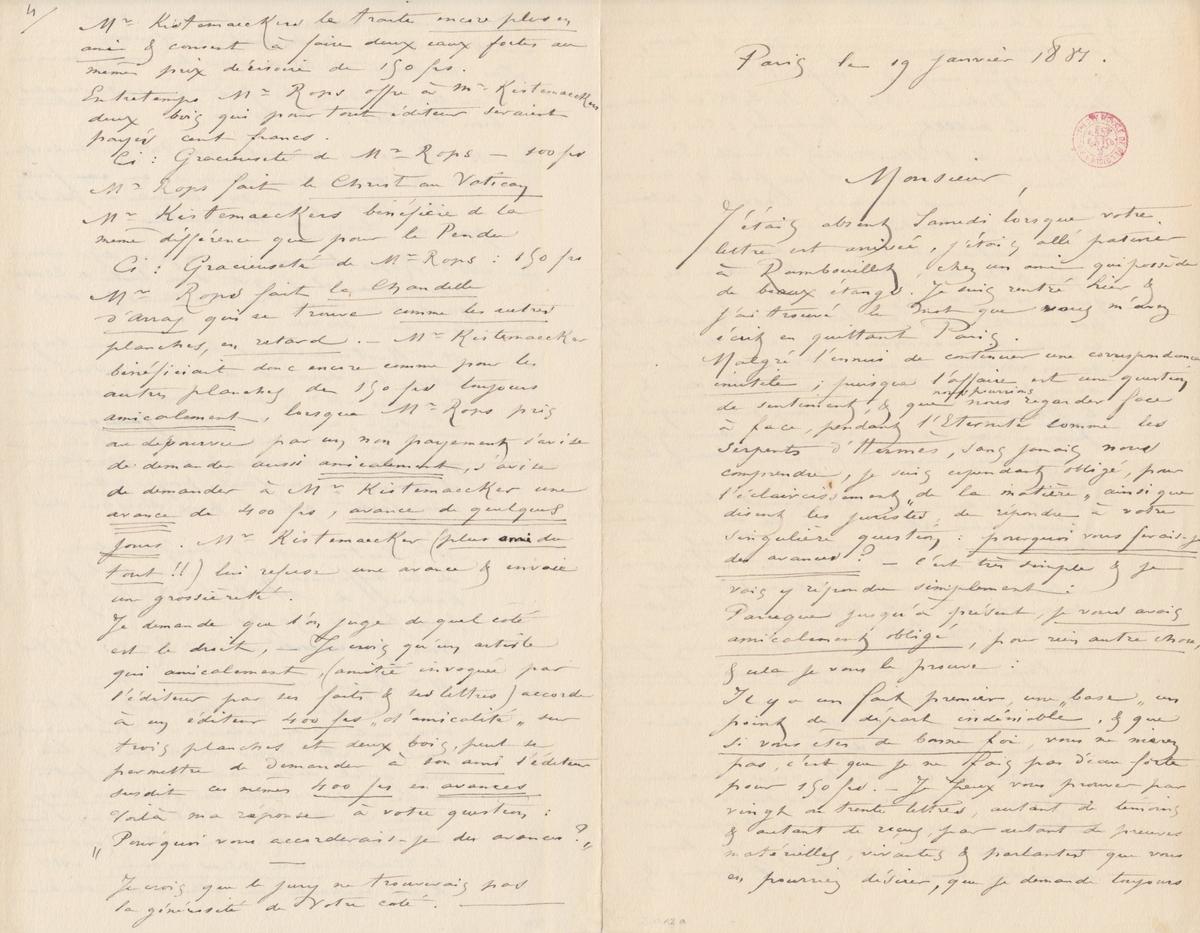 4/
Mr Kistemaeckers le traite encore plus en
ami & consent à faire deux eaux fortes au
même prix dérisoire de 150 frs.
Entretemps Mr Rops offre à Mr Kistemaeckers
deux bois qui pour tout éditeur seraient
payés cent francs.
Ci : Gracieuseté de Mr Rops — 100 frs
Mr Rops fait le Christ au Vatican
Mr Kistemaeckers bénéficie de la
même différence que pour le Pendu
Ci : Gracieuseté de Mr Rops : 150 frs
Mr Rops fait la Chandelle
d'Arras qui se trouve comme les autres
planches, en retard. — Mr Kistemaecker
bénéficiait donc encore comme pour les
autres planches de 150 frs toujours
amicalement, lorsque Mr Rops pris
au dépourvu par un non payement s'avise
de demander aussi amicalement, s'avise
de demander à Mr Kistemaecker une
avance de 400 frs, avance de quelques
jours. Mr Kistemaecker (plus ami du
tout !!) lui refuse une avance & envoie
une grossièreté.
Je demande que l'on juge de quel coté
est le droit, — Je crois qu'un artiste
qui amicalement, (amitié invoquée par
l'éditeur par ses faits & ses lettres) accorde
à un éditeur 400 frs „d'amicalité„ sur
trois planches et deux bois, peut se
permettre de demander à son ami l'éditeur
susdit ces mêmes 400 frs en avances
Voilà ma réponse à votre question :
„Pourquoi vous accorderais-je des avances ?„
Je crois que le jury ne trouverais pas
la générosité de Votre côté. —
Paris le 19 janvier 1887.
Monsieur,
J'étais absent Samedi lorsque votre
lettre est arrivée, j'étais allé patiner
à Rambouillet, chez un ami qui possède
de beaux étangs. Je suis rentré hier &
j'ai trouvé le mot que vous m'avez
écrit en quittant Paris.
Malgré l'ennui de continuer une correspondance
inutile ; puisque l'affaire est une question
de sentiment, & que nous pourrions nous regarder face
à face, pendant l'Eternité comme les
serpents d'Hermès, sans jamais nous
comprendre, je suis cependant obligé, pour
l'éclaircissement „de la matière„ ainsi que
disent les juristes, de répondre à votre
singulière question : pourquoi vous ferais-je
des avances ? — c'est très simple & je
vais y répondre simplement :
Parceque jusqu'à présent, je vous avais
amicalement obligé, pour rien autre chose,
& cela je vous le prouve :
Il y a un fait premier, une „base„ un
point de départ indéniable, & que
si vous êtes de bonne foi, vous ne nierez
pas, c'est que je ne fais pas d'eau-forte
pour 150 frs. — Je peux vous prouver par
vingt ou trente lettres, autant de témoins
& autant de reçus, par autant de preuves
matérielles, vivantes & parlantes que vous
en pourriez désirer, que je demande toujours